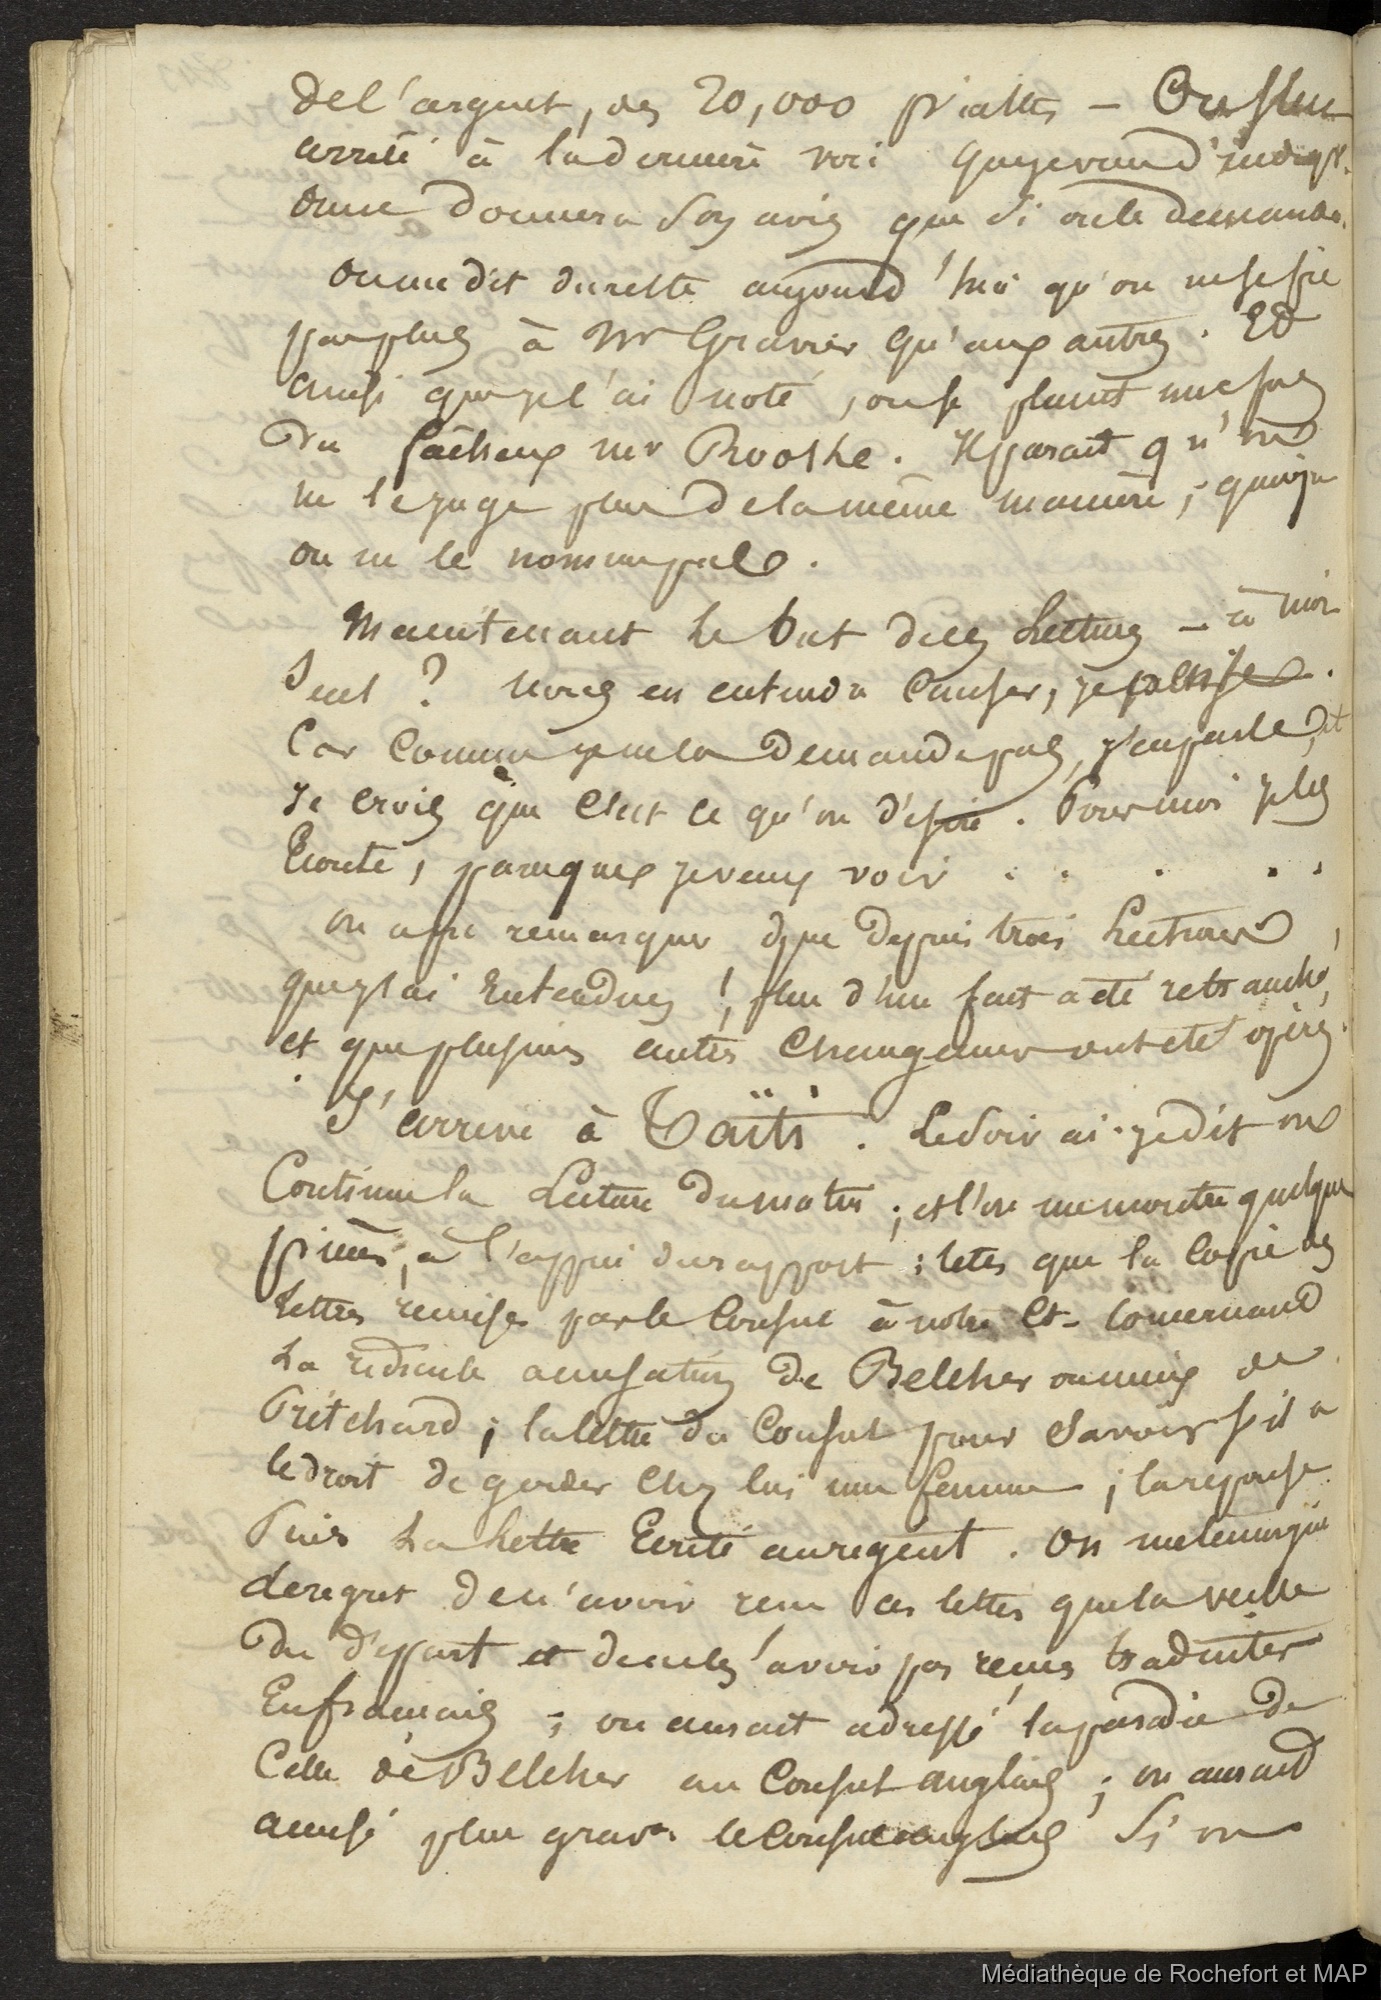 de l'argent, des 20,000 piastes – On s'en
arrêté à la dernière voie que je viens d'indiq.
on ne donnera son avis que si on le demande.
on me dit du reste aujourd'hui qu'on ne se fie
pas plus à Mr Gravier qu'aux autres. Et
ainsi que je l'ai noté, on se plaint
du fâcheux mr Rooske. Il parait qu'on
ne le juge plus de la même manière, quoique
on ne le nomme pas.
Maintenant le but de ces Lectures – à moi
seul ? nous en entendra causer,
Car comme je ne la demande pas, j'en parle, et
Je crois que c'est ce qu'on désire. Pour moi je les
Ecoute, parceque je veux voir . . . . .
on a pu remarquer que depuis trois Lectures,
que j'ai Entendues !, plus d'un fait a été retranché,
et que plusieurs autres changemens ont été opérés.
J'arrive à Taïti. Le Soir ai-je dit on
Continue la Lecture du matin ; et l'on me montre quelques
pièces, à l'appui du rapport ; telles que la Copie des
Lettres remises par le Consul à notre Ct – Concernant
La ridicule accusation de Belcher ou mieux de
Pritchard ; la lettre du Consul pour Savoir s'il a
le droit de garder Chez lui une femme ; la réponse
Puis La Lettre Ecrite au régent. On me témoigne
de regret de n'avoir reçu ces lettres que la veille
Du départ et de ne les avoir pas reçues traduites
En français ; on aurait adressé la parodie de
Celle de Belcher au Consul anglais ; on aurait
accusé plus grave le Consul anglais Si on